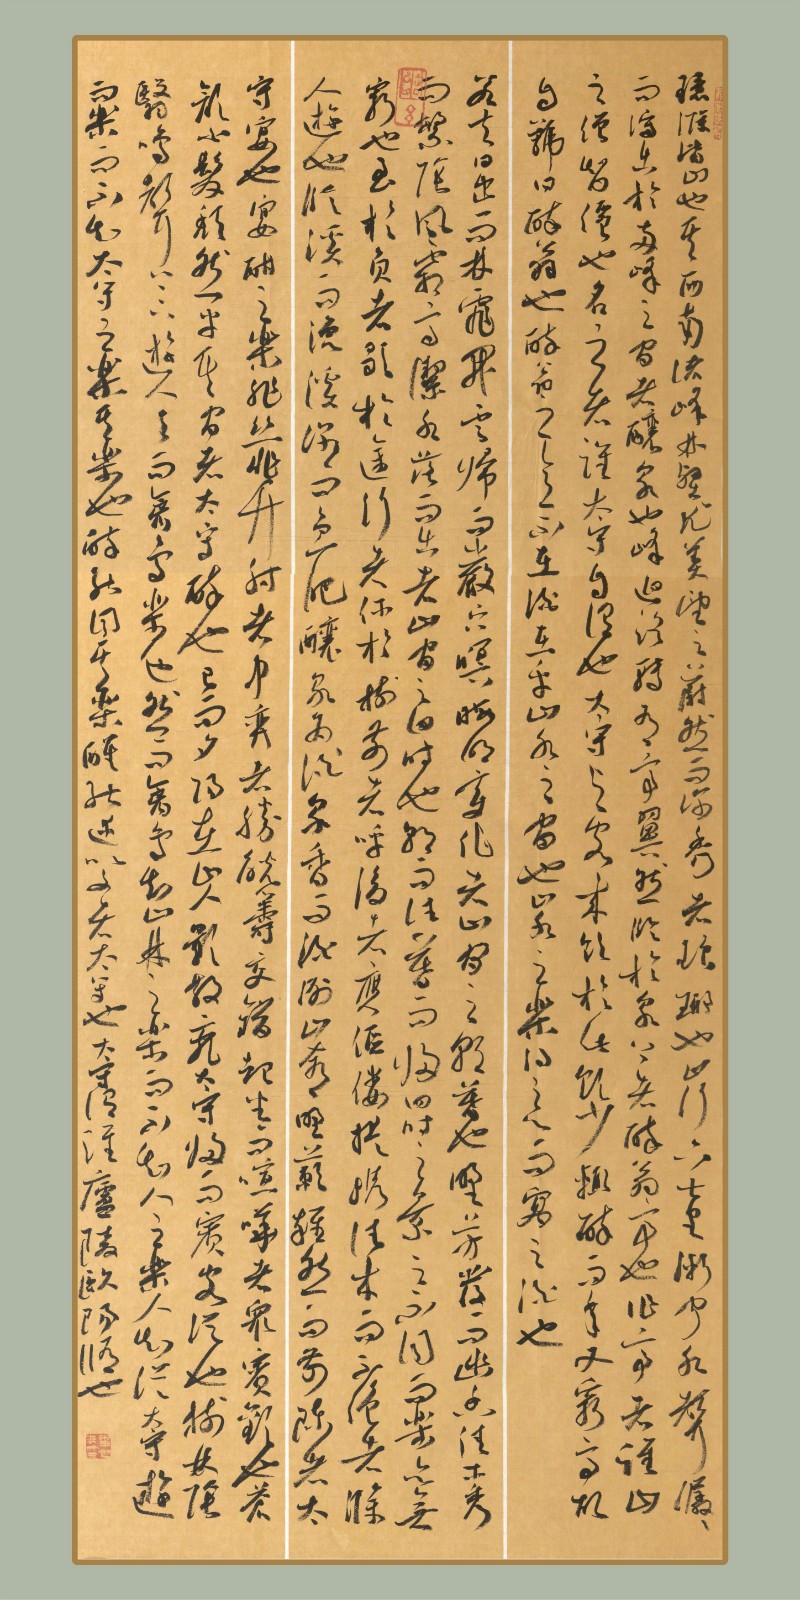 環滁皆山也其西南諸峰林壑尤美望之蔚然而深秀者琅琊也山行六七里漸聞水聲潺潺
而瀉出於兩峰之間者釀泉也峰迴路轉有亭翼然臨於泉上者醉翁亭也作亭者誰山
之僧智僊也名之者誰太守自謂也太守與客來飲於此飲少輒醉而年又最高故
自號曰醉翁也醉翁之意不在酒在乎山水之間也山水之樂得之心而寓之酒也
若夫日出而林霏開雲歸而巖穴暝晦明變化者山間之朝暮也野芳發而幽香佳木秀
而繁陰風霜高潔水落而出者山間之四時也朝而往暮而歸四時之景不同而樂亦無
窮也至於負者歌於途行者休於樹前者呼後者應傴僂提攜往來而不絕者滁
人遊也臨溪而漁溪深而魚肥釀泉為酒泉香而酒洌山肴野蔌雜然而前陳者太
守宴也宴酣之樂非絲非竹射者中弈者勝觥籌交錯起坐而喧嘩者衆賓歡也蒼
顏白髮頹然乎其間者太守醉也已而夕陽在山人影散亂太守歸而賓客從也樹林陰
翳鳴聲上下遊人去而禽鳥樂也然而禽鳥知山林之樂而不知人之樂人知從太守遊
而樂而不知太守之樂其樂也醉能同其樂醒能述以文者太守也太守謂誰廬陵歐陽脩也